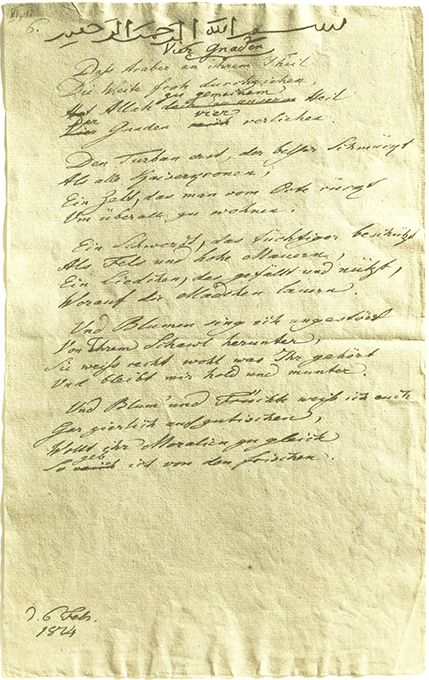 6. بسم الله الرحمن الرحيم
Vier Gnaden
Daß Araber an ihrem Theil
Die Weite froh durchziehen,
zu gemeinem
Hat Allah Heil
Der vier
Gnaden verliehen.
Den Turban erst, der besser schmückt
Als alle Kaiserkronen,
Ein Zelt, das man vom Orte rückt
Um überall zu wohnen.
Ein Schwerdt, das tüchtiger beschützt
Als Fels und hohe Mauern,
Ein Liedchen, das gefällt und nützt,
Worauf die Mädchen lauern.
Und Blumen sing ich ungestört
Von Ihrem Schawl herunter,
Sie weiß recht wohl was Ihr gehört
Und bleibt mir hold und munter.
Und Blum' und Früchte weiß ich euch
Gar zierlich aufzutischen,
Wollt ihr Moralien zugleich
geb
So ich von den frischen.
d. 6 Febr.
1814